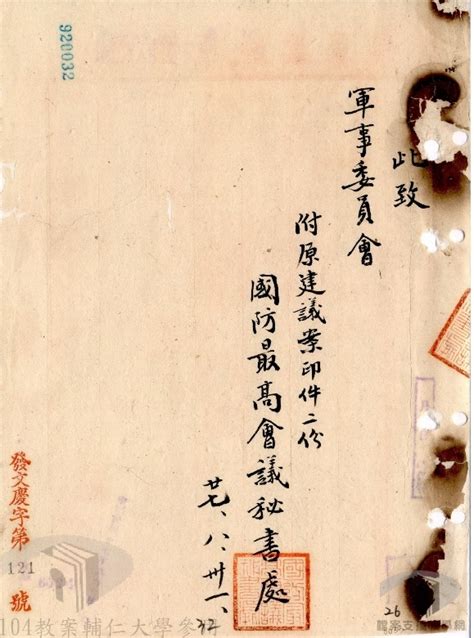 920032
此致
軍事委員會
附原建議案印件二份
國防最高會議秘書處
廿七、八、卅一、
發文慶字第
121
號
26
104教案輔仁大學參